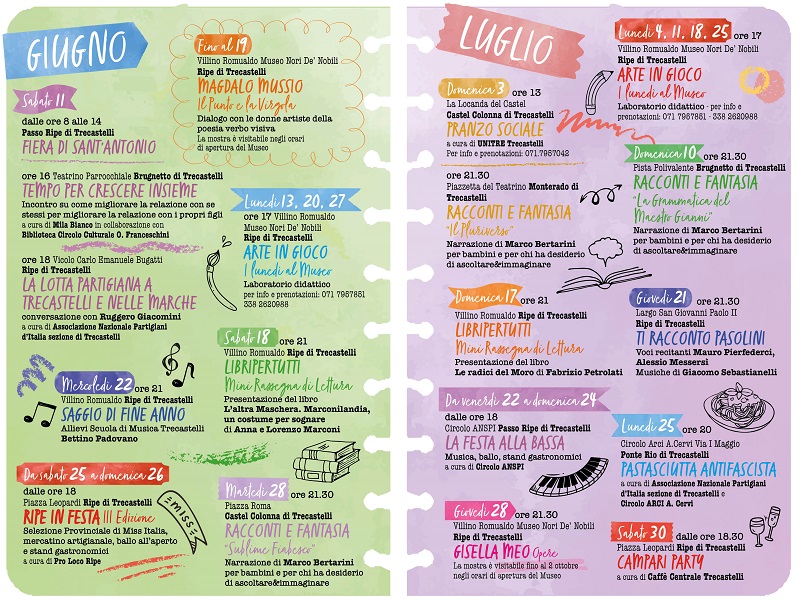 GIUGNO
Sabato 11
dalle ore 8 alle 14
Passo Ripe di Trecastelli
FIERA DI SANT'ANTONIO
ore 16 Teatrino Parrocchiale Brugnetto di Trecastelli
TEMPO PER CRESCERE INSIEME
Incontro su come migliorare la relazione con se
stessi per migliorare la relazione con i propri figli
a cura di Mila Bianco in collaborazione con
Biblioteca Circolo Culturale O. Franceschini
ore 18 Vicolo Carlo Emanuele Bugatti
Ripe di Trecastelli
LA LOTTA PARTIGIANA A
TRECASTELLI E NELLE MARCHE
conversazione con Ruggero Giacomini
a cura di Associazione Nazionale Partigiani
d'Italia sezione di Trecastelli
Mercoledì 22 ore 21
Villino Romualdo Ripe di Trecastelli
SAGGIO DI FINE ANNO
Allievi Scuola di Musica Trecastelli
Bettino Padovano
Da sabato 25 a domenica 26
dalle ore 18
Piazza Leopardi Ripe di Trecastelli
RIPE IN FESTA III Edizione
Selezione Provinciale di Miss Italia,
mercatino artigianale, ballo all'aperto
e stand gastronomici
a cura di Pro Loco Ripe
=MISS=
Fino al 19
Villino Romualdo Museo Nori De' Nobili
Ripe di Trecastelli
MAGDALO MUSSIO
Il Punto e la Virgola
Dialogo con le donne artiste della
poesia verbo visiva
La mostra è visitabile negli orari
di apertura del Museo
Lunedì 13, 20, 27
ore 17 Villino Romualdo
Museo Nori De' Nobili
Ripe di Trecastelli
ARTE IN GIOCO
I lunedì al Museo
Laboratorio didattico
per info e prenotazioni: 071 7957851
338 2620988
Sabato 18 ore 21
Villino Romualdo Ripe di Trecastelli
LIBRIPERTUTTI
Mini Rassegna di Lettura
Presentazione del libro
L'altra Maschera. Marconilandia,
un costume per sognare
di Anna e Lorenzo Marconi
Martedì 28 ore 21.30
Piazza Roma
Castel Colonna di Trecastelli
RACCONTI E FANTASIA
"Sublime Fiabesco"
Narrazione di Marco Bertarini
per bambini e per chi ha desiderio
di ascoltare&immaginare
LUGLIO
Domenica 3 ore 13
La Locanda del Castel
Castel Colonna di Trecastelli
PRANZO SOCIALE
a cura di UNITRE Trecastelli
Per info e prenotazioni: 071.7957042
ore 21.30
Piazzetta del Teatrino Monterado di
Trecastelli
RACCONTI E FANTASIA
"Il Pluriverso"
Narrazione di Marco Bertarini
per bambini e per chi ha desiderio
di ascoltare&immaginare
Domenica 17 ore 21
Villino Romualdo Ripe di Trecastelli
LIBRIPERTUTTI
Mini Rassegna di Lettura
Presentazione del libro
Le radici del Moro di Fabrizio Petrolati
Da venerdì 22 a domenica 24
dalle ore 18
Circolo ANSPI Passo Ripe di Trecastelli
LA FESTA ALLA BASSA
Musica, ballo, stand gastronomici
a cura di Circolo ANSPI
Giovedì 28 ore 21.30
Villino Romualdo Museo Nori De' Nobili
Ripe di Trecastelli
GISELLA MEO Opere
La mostra è visitabile fino al 2 ottobre
negli orari di apertura del Museo
Lunedì 4, 11, 18, 25 ore 17
Villino Romualdo Museo Nori De' Nobili
Ripe di Trecastelli
ARTE IN GIOCO
I lunedì al Museo
Laboratorio didattico - per info e
prenotazioni: 071 7957851 - 338 2620988
Domenica 10 ore 21.30
Pista Polivalente Brugnetto di Trecastelli
RACCONTI E FANTASIA
"La Grammatica del
Maestro Gianni"
Narrazione di Marco Bertarini
per bambini e per chi ha desiderio
di ascoltare&immaginare
Giovedì 21 ore 21.30
Largo San Giovanni Paolo II
Ripe di Trecastelli
TI RACCONTO PASOLINI
Voci recitanti Mauro Pierfederci,
Alessio Messersì
Musiche di Giacomo Sebastianelli
Lunedì 25 ore 20
Circolo Arci A.Cervi Via I Maggio
Ponte Rio di Trecastelli
PASTASCIUTTA ANTIFASCISTA
a cura di Associazione Nazionale Partigiani
d'Italia sezione di Trecastelli e
Circolo ARCI A. Cervi
Sabato 30 dalle ore 18.30
Piazza Leopardi Ripe di Trecastelli
CAMPARI PARTY
a cura di Caffè Centrale Trecastelli